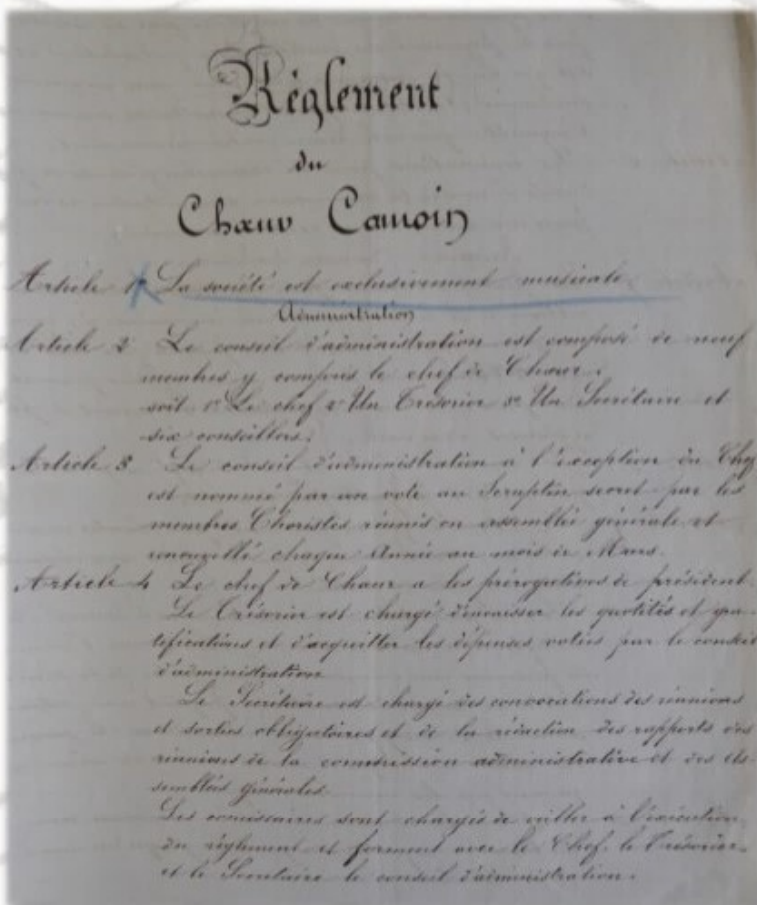 Règlement
du
Chœur Camoin
Article 1er La société est exclusivement musicale
Administration
Article 2 Le conseil d'administration est composé de neuf
membres y compris le chef de Chœur.
soit 1o Le chef 2o Un Trésorier 3o Un Secrétaire et
six conseillers.
Article 3 Le conseil d'administration à l'exception du Chef
est nommé par un vote au Scruptin secret par les
membres Choristes réunis en assemblée générale et
renouvellé chaque Année au mois de Mars.
Article 4 Le chef de Chœur a les prérogatives de président.
Le Trésorier est chargé d'encaisser les quotités et gra-
tifications et d'acquitter les dépenses votées par le conseil
d'administration
Le Secrétaire est chargé des convocations des réunions
et sorties obligatoires et de la rédaction des rapports des
réunions de la commission administrative et des As-
semblées générales.
Les comissaires sont chargés de veiller à l'exécution
du règlement et forment avec le Chef, le Trésorier
et le Secrétaire le conseil d'administration.